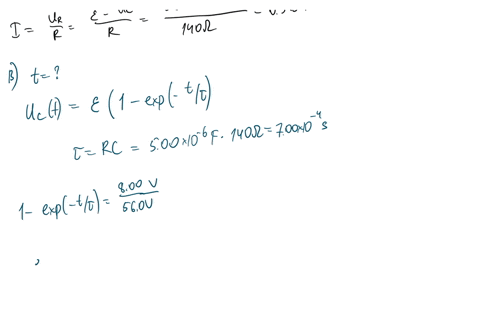 I = U_R/R = ε - u_c/R = /140Ω
B) t = ?
U_C(t) = ε (1 - exp(-t/τ)
τ = RC = 5.00×10⁻⁶ F · 140Ω = 7.00×10⁻⁴ s
1 - exp(-t/τ) = 8.00 V/56.0V